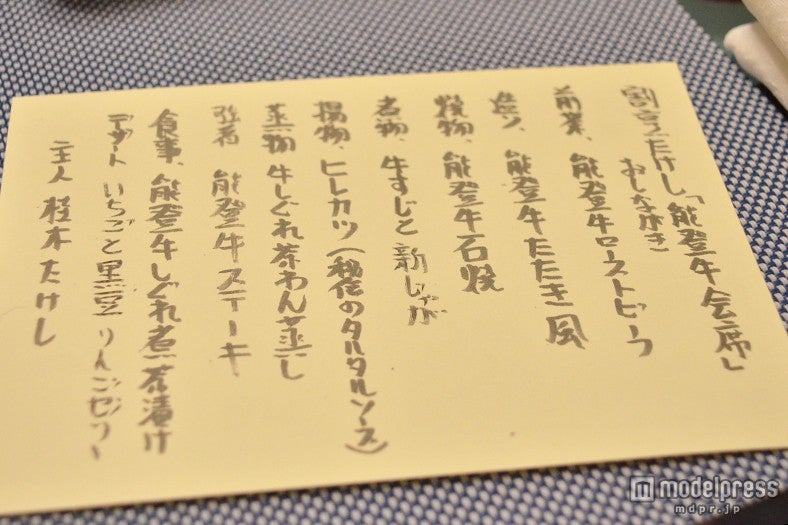 割烹たけし「能登牛会席」
おしながき
前菜、能登牛ローストビーフ
造り、能登牛たたき風
焼物、能登牛石焼
煮物、牛すじと新じゃが
揚物、ヒレカツ(秘伝のタルタルソース)
蒸物 牛しぐれ茶わん蒸し
強肴 能登牛ステーキ
食事、能登牛しぐれ煮茶漬け
デザート いちごと黒豆 りんごゼリー
主人 桂木たけし
modelpress
mdpr.jp